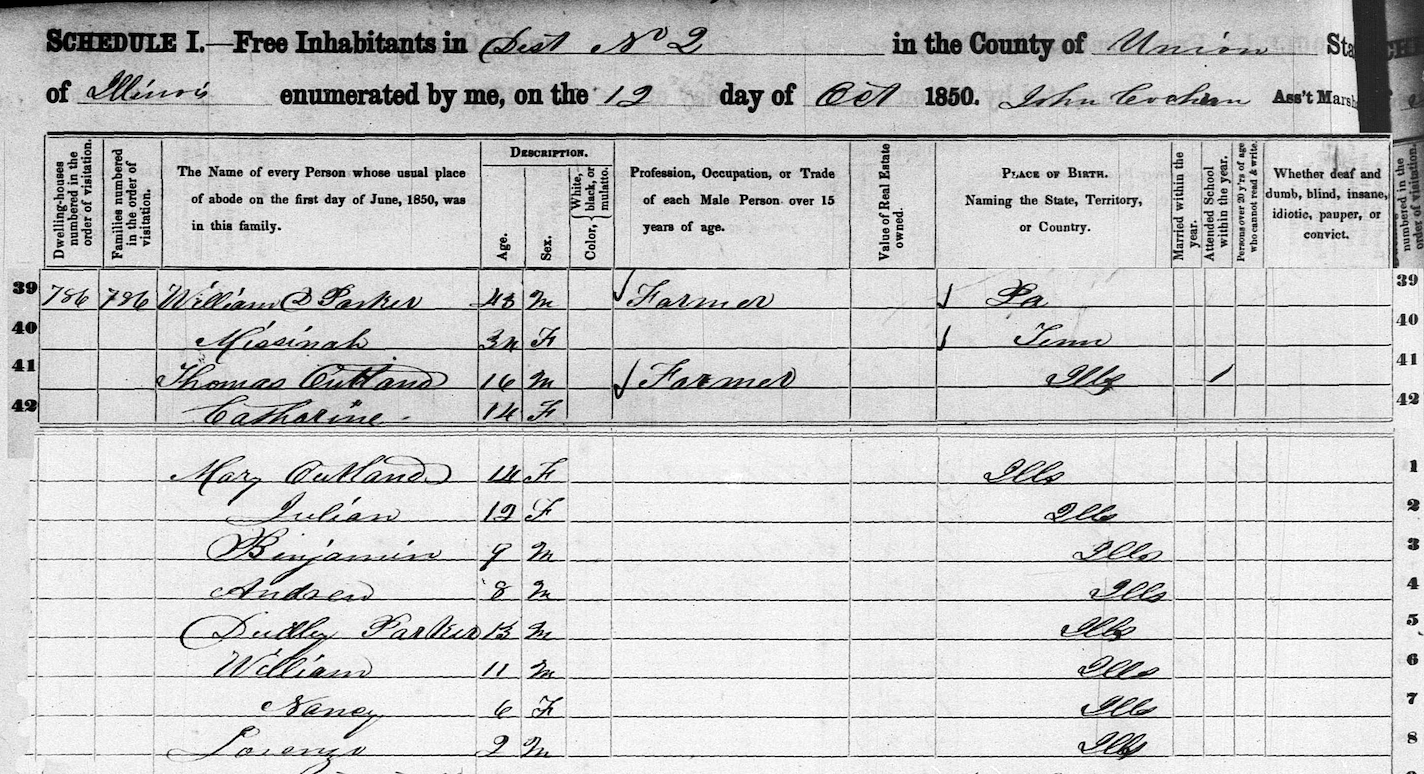 SCHEDULE I.—Free Inhabitants in Dist No 2 in the County of Union Sta
of Illinois enumerated by me, on the 12 day of Oct 1850. John Cochran Ass't Marsh
Dwelling-houses numbered in the order of visitation.
Families numbered in the order of visitation.
The Name of every Person whose usual place of abode on the first day of June, 1850, was in this family.
DESCRIPTION.
Age.
Sex.
Color, { White, black, or mulatto.
Profession, Occupation, or Trade of each Male Person over 15 years of age.
Value of Real Estate owned.
PLACE OF BIRTH. Naming the State, Territory, or Country.
Married within the year.
Attended School within the year.
Persons over 20 y'rs of age who cannot read & write.
Whether deaf and dumb, blind, insane, idiotic, pauper, or convict.
numbered in the order of visitation.
39 786 786 William D Parker 43 M Farmer Pa 39
40 Missinah 34 F Tenn 40
41 Thomas Outland 16 M Farmer Ills / 41
42 Catharine 14 F 42
Mary Outland 14 F Ills 1
Julian 12 F Ills 2
Binjamin 9 M Ills 3
Andrew 8 M Ills 4
Dudley Parker 13 M Ills 5
William 11 M Ills 6
Nancy 6 F Ills 7
Lorenzo 2 M Ills 8